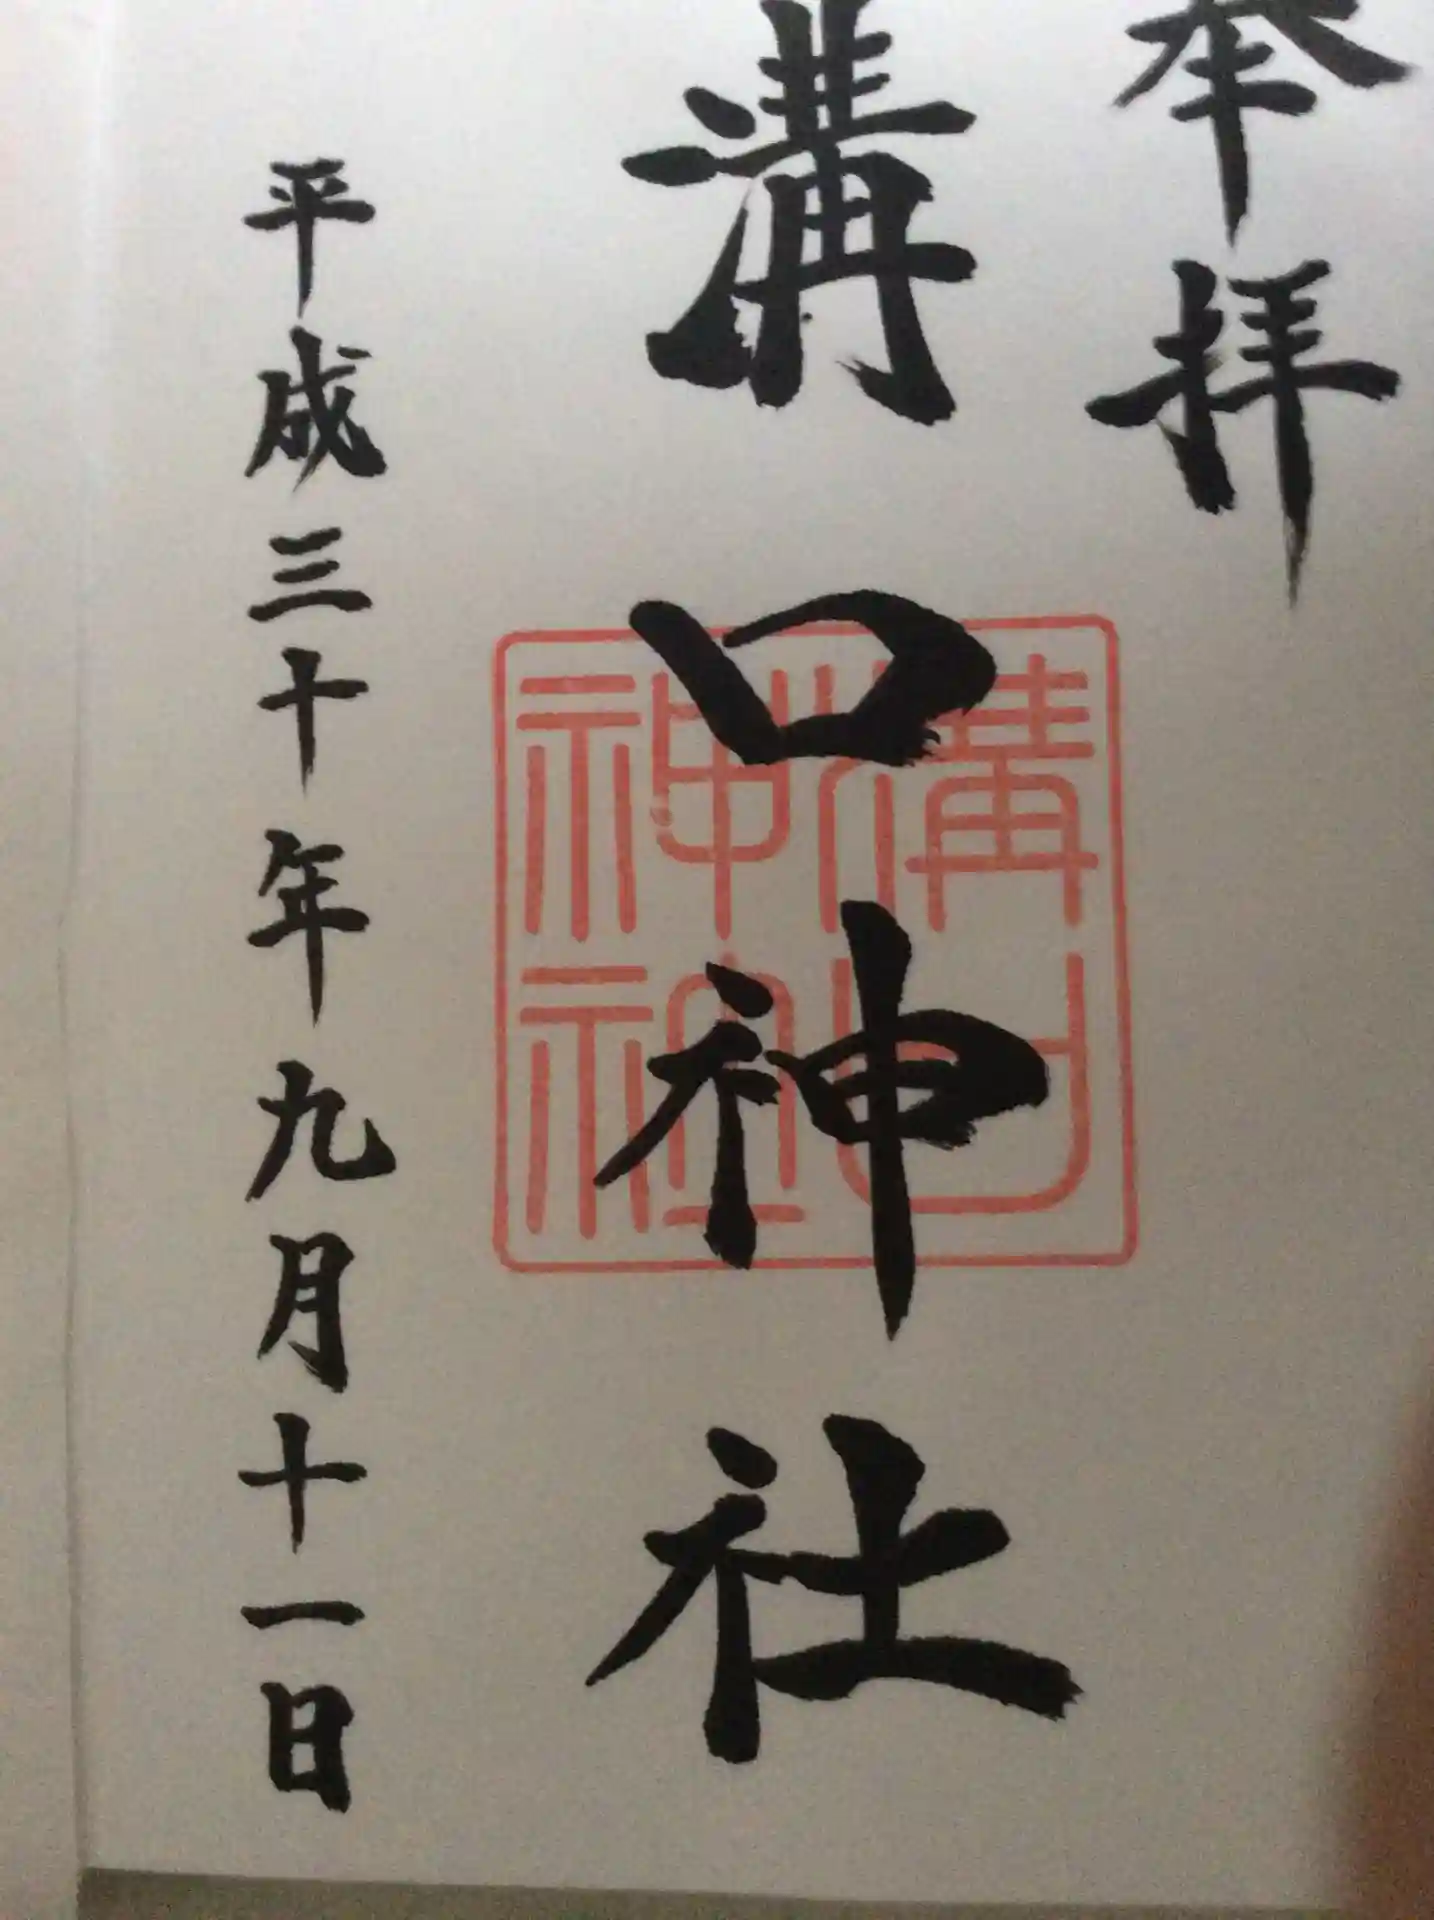 奉拝
溝口神社
溝口
神社
平成三十年九月十一日